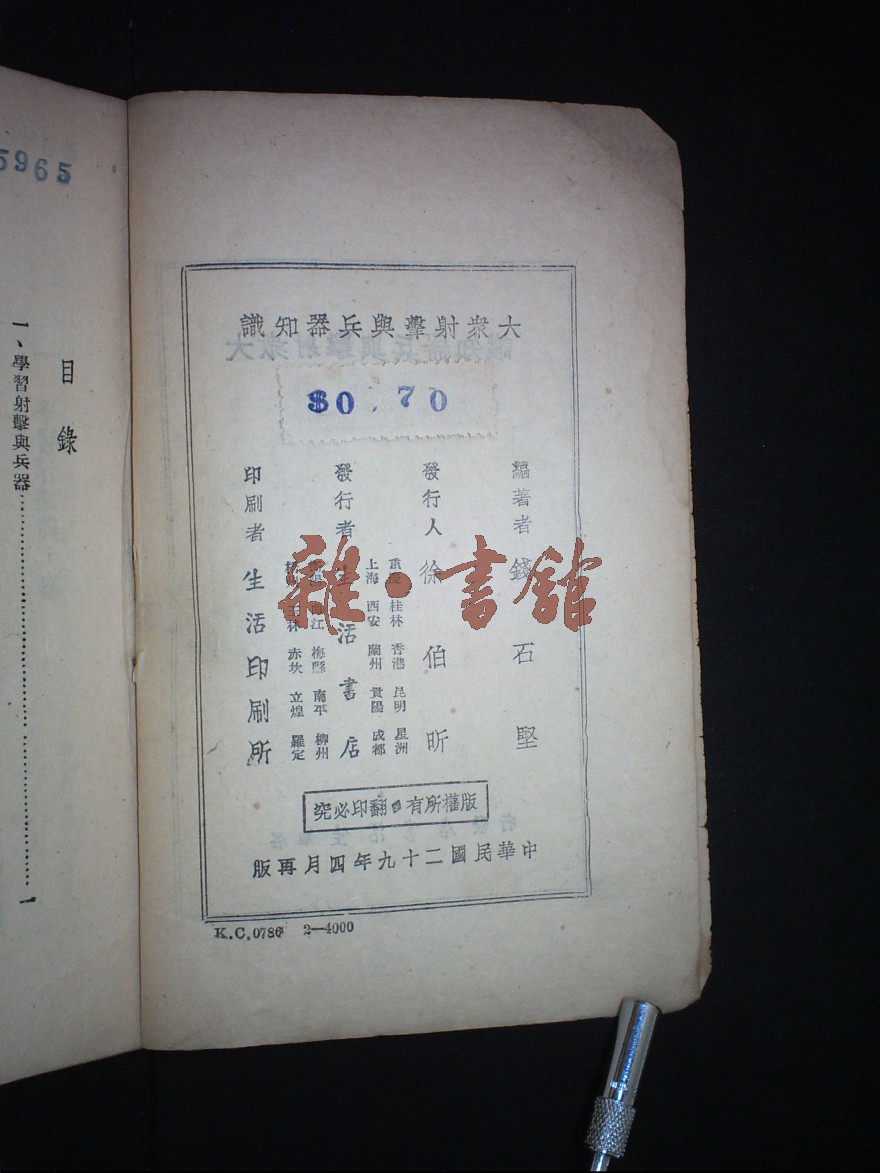 大衆射擊與兵器知識
$0.70
編著者 錢石堅
發行人 徐伯昕
發行者 生活書店
重慶 桂林 香港 昆明 星洲
上海 西安 蘭州 貴陽 成都
曲江 梅縣 南平 柳州
玉林 赤坎 立煌 羅定
印刷者 生活印刷所
版權所有·翻印必究
中華民國二十九年四月再版
K.C.0786 2—4000
5965
目錄
一、學習射擊與兵器……………………一
雜·書館